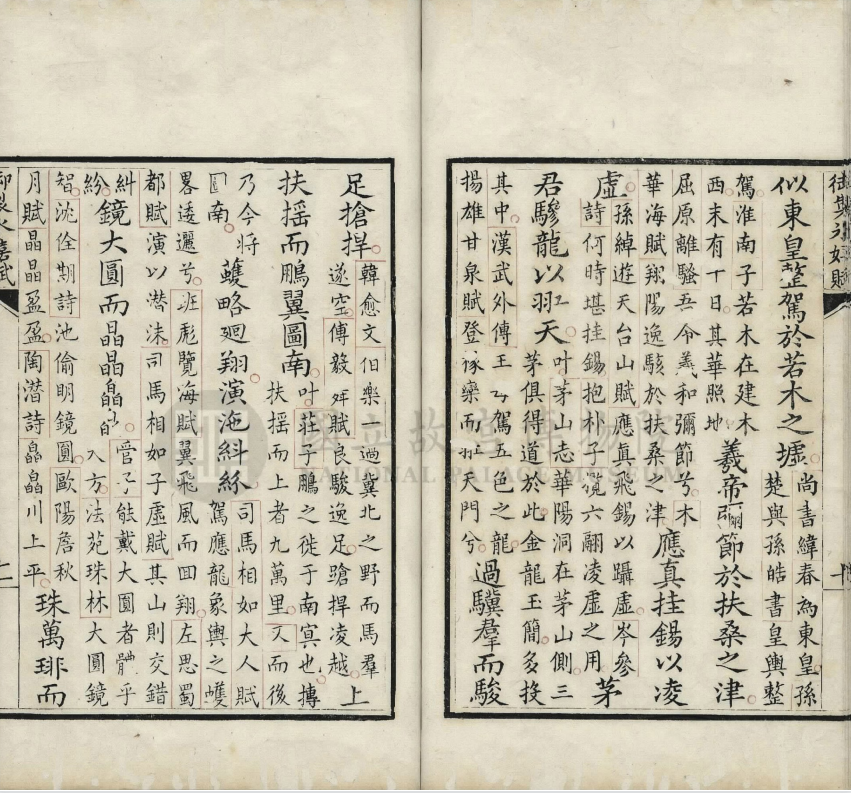 似東皇整駕於若木之墟
尚書緯春為東皇孫
楚與孫皓書皇輿整
駕淮南子若木在建木
西末有十日其華照地
羲帝弭節於扶桑之津
屈原離騷吾令羲和彌節兮木
華海賦翔陽逸駭於扶桑之津
應真挂錫以凌
虛
孫綽遊天台山賦應真飛錫以躡虛岑參
詩何時堪挂錫抱朴子覽六翮凌虛之用
茅
君驂龍以羾天
叶茅山志華陽洞在茅山側三
茅俱得道於此金龍玉簡多投
其中漢武外傳王母駕五色之龍
揚雄甘泉賦登椽欒而羾天門兮
過驥羣而駿
足搶捍
韓愈文伯樂一過冀北之野而馬羣
遂空傅毅舞賦良駿逸足蹌捍凌越
上
扶摇而鵬翼圖南
叶莊子鵬之徙于南冥也摶
扶摇而上者九萬里又而後
乃今將
圖南
蠖略廻翔演迤糾紛
司馬相如大人賦
駕應龍象輿之蠖
畧逶邐兮班彪覽海賦翼飛風而回翔左思蜀
都賦演以潜沬司馬相如子虛賦其山則交錯
糾
紛
鏡大圓而晶晶皛皛
管子能戴大圓者體乎
大方法苑珠林大圓鏡
智沈佺期詩池偷明鏡圓歐陽詹秋
月賦晶晶盈盈陶潜詩皛皛川上平
珠萬琲而
國立故宮博物院
NATIONAL PALACE MUSEUM